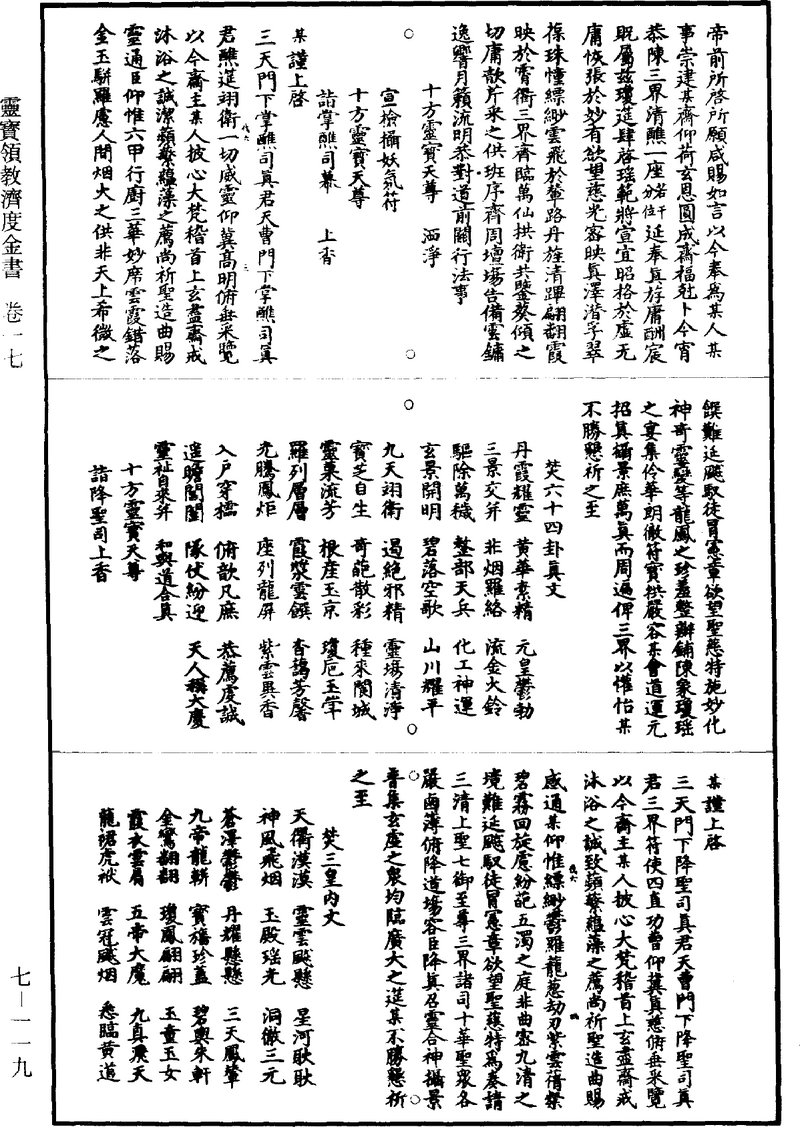 帝前所啓所願咸賜如言以今奉為某人某
事崇建某齋仰荷玄恩圓成齋福尅卜今宵
恭陳三界清醮一座若干分位延奉真㳺庸酬宸
貺屬兹瓊筵肆啓瑤範將宣宜昭格於虚无
庸恢張於妙有欲望慈光密映真澤潛孚翠
葆珠幢縹緲雲飛於輦路丹旌清蹕翩翻霞
映於霄衢三界齊臨萬仙拱衛共鑒葵傾之
切庸歆芹采之供班序齊周壇場告備雲鏞
逸響月籟流明恭對道前關行法事
十方靈寶天尊 洒淨
宣檢攝妖氛符
十方靈寶天尊
詣掌醮司幕 上香
某謹上啓
三天門下掌醮司真君天曹門下掌醮司真
君醮筵翊衛一切威靈仰冀高明俯垂采覽
以今齋主某人披心大梵稽首上玄盡齋戒
沐浴之誠潔蘋蘩蘊藻之薦尚祈聖造曲賜
靈通臣仰惟六甲行廚三華妙席雲霞錯落
金玉駢羅慮人間烟火之供非天上希微之
饌難廷飈馭徒冒憲章欲望聖慈特施妙化
神奇靈變等龍鳳之珍羞整辦鋪陳象瓊瑤
之宴集伶華朗徹符寳拱嚴容某會道運元
招真攝景庶萬真而周遍俾三界以懽怡某
不勝懇祈之至
焚六十四卦真文
丹霞耀靈 黄華素精 元皇鬱勃
三景交并 非烟羅絡 流金火鈴
驅除萬穢 整部天兵 化工神運
玄景開明 碧落空歌 山川耀平
九天翊衛 遏絶邪精 靈場清淨
寳芝自生 奇葩散彩 種來閬城
靈棗流芳 根產玉京 瓊卮玉斝
羅列層層 霞漿雲饌 香藹芳馨
光騰鳳炬 座列龍屏 紫雲異香
入戶穿櫺 俯歆凡庶 恭薦虔誠
遥瞻閶闔 隊仗紛迎 天人稱大慶
靈祉自來并 和與道合真
十方靈寳天尊
詣降聖司上香
某謹上啓
三天門下降聖司真君天曹門下降聖司真
君三界符使四直功曹仰冀真慈俯垂采覽
以今齋主某人披心大梵稽首上玄盡齋戒
沐浴之誠致蘋蘩蘊藻之薦尚祈聖造曲賜
感通某仰惟縹緲鬱羅蘢葱劫刃紫雲蓓粲
碧霧回旋慮紛葩五濁之庭非曲密九清之
境難廷飈馭徒冒憲章欲望聖慈特為奏請
三清上聖七御至尊三界諸司十華聖衆各
嚴鹵薄俯降道場容臣降真召靈合神攝景
普集玄虚之衆均臨廣大之筵某不勝懇祈
之至
焚三皇内文
天衢漠漠 靈雲飈懸 星河耿耿
神風飛烟 玉殿瑤光 洞徹三元
蒼澤鬱鬱 丹耀懸懸 三天鳳輦
九帝龍軿 寳旛珍蓋 碧輿朱軒
金鸞翻翻 瓊鳳翩翩 玉童玉女
霞衣雲肩 五帝大魔 九真飛天
龍裙虎袱 雲冠飈烟 悉臨黄道
靈寶領教濟度金書 卷一七
七—一一九